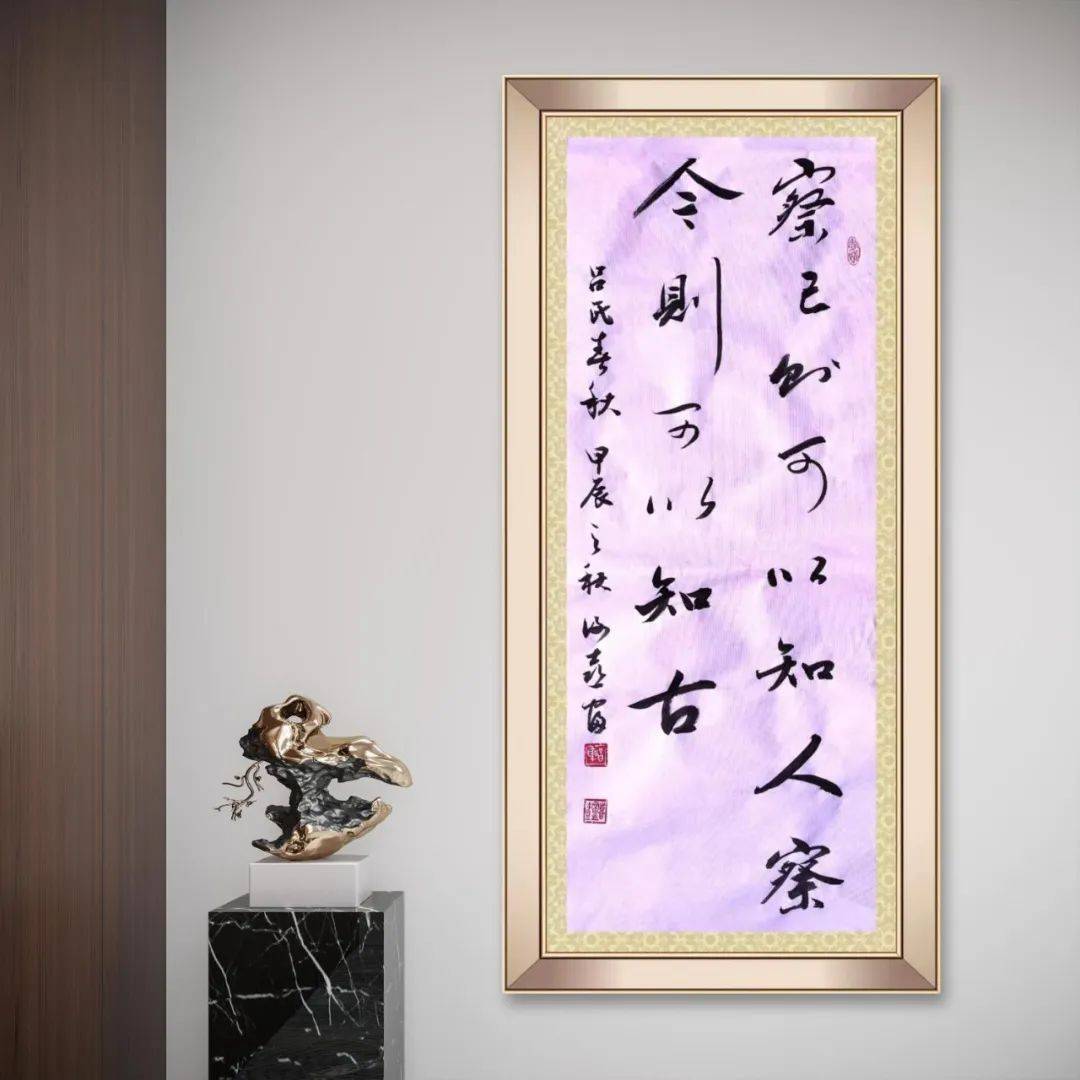 察己则可以知人察
今則可以知古
吕氏春秋 甲辰之秋